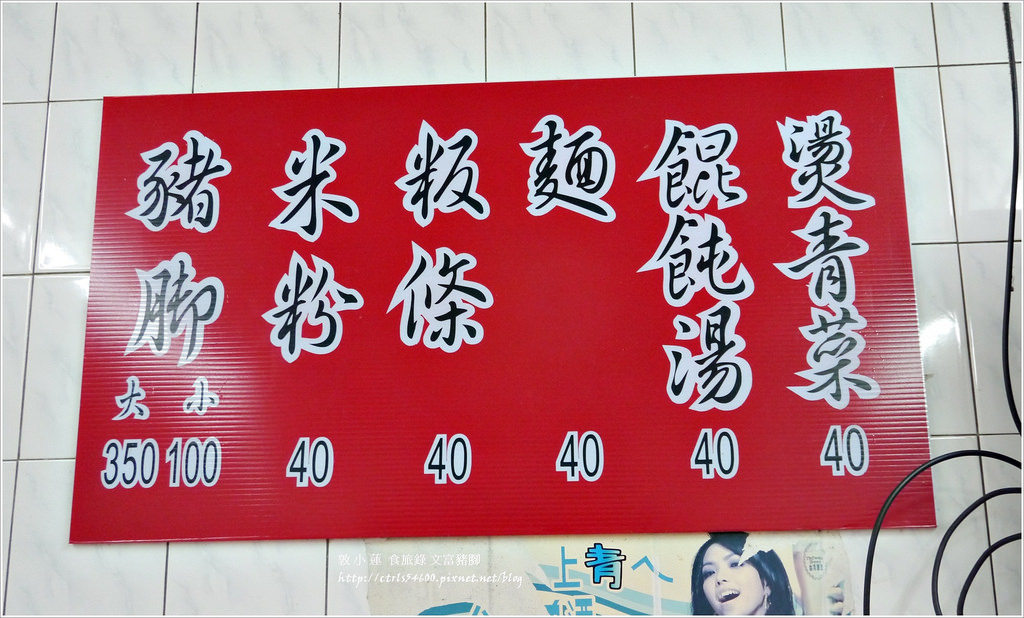 豬脚
大 小
350 100
米粉
40
粄條
40
麵
40
餛飩湯
40
燙青菜
40
上青へ
敦小蓮 食旅錄 文富豬腳
http://ctrls54600.pixnet.net/blog